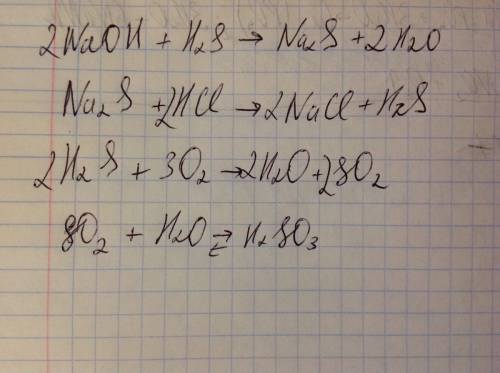 2NaOH + H2S → Na2S + 2H2O
Na2S + 2HCl → 2NaCl + H2S
2H2S + 3O2 → 2H2O + 2SO2
SO2 + H2O ⇄ H2SO3